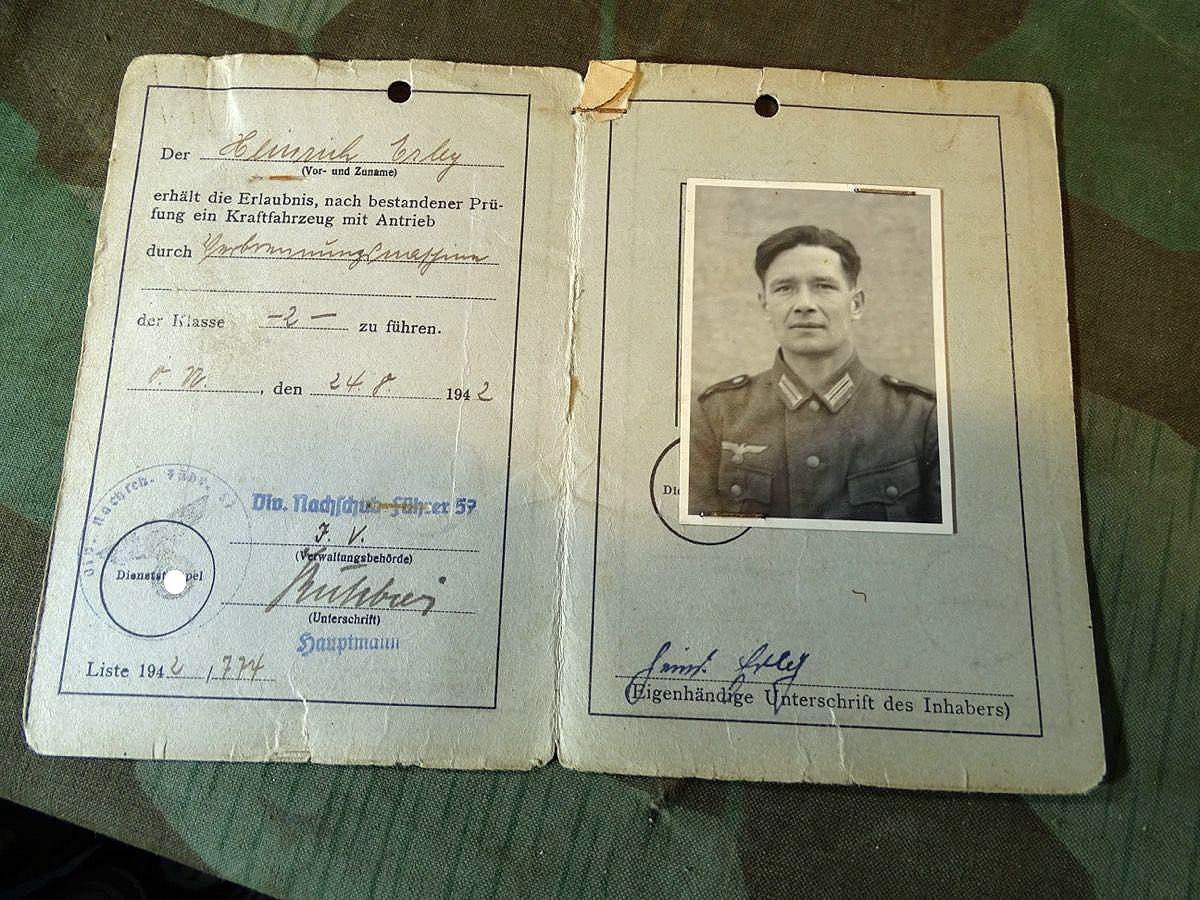 Der Heinrich Erley
(Vor- und Zuname)
erhält die Erlaubnis, nach bestandener Prü-
fung ein Kraftfahrzeug mit Antrieb
durch Verbrennungsmaschine
der Klasse -2- zu führen.
O. U., den 24.8. 1942
Div. Nachschub-Führer 57
J. V.
(Verwaltungsbehörde)
(Unterschrift)
Hauptmann
Dienststempel
Liste 1942/774
Die
Heinr. Erley
(Eigenhändige Unterschrift des Inhabers)